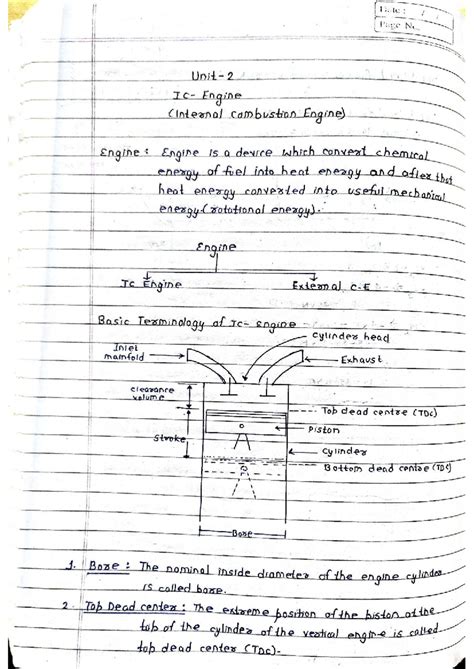 Date: / /
Page No.
Unit-2
IC- Engine
(Internal Combustion Engine)
Engine: Engine is a device which convert chemical
energy of fuel into heat energy and after that
heat energy converted into useful mechanical
energy (rotational energy).
Engine
IC Engine
External C.E
Basic Terminology of IC- Engine
Cylinder head
Inlet
manifold
Exhaust
clearance
volume
Top dead centre (TDC)
Piston
Stroke
Cylinder
Bottom dead centre (TDC)
Bore
1. Bore: The nominal inside diameter of the engine cylinder
is called bore.
2. Top Dead center: The extreme position of the piston at the
top of the cylinder of the vertical engine is called
top dead center (TDC).